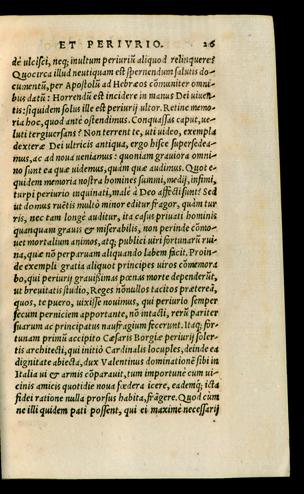 ET PERIVRIO. 26
dē ulcisci, neq; inultum periuriū aliquod relinquere?
Quocirca illud neutiquam est spernendum salutis do-
cumentū, per Apostolū ad Hebræos cōmuniter omni-
bus datū: Horrendū est incidere in manus Dei uiuen-
tis: siquidem solus ille est periurij ultor. Retine memo-
ria hoc, quod antè ostendimus. Conquassas caput, ue-
luti tergiuersans? Non terrent te, uti uideo, exempla
dexteræ Dei ultricis antiqua, ergo hisce supersedea-
mus, ac ad noua ueniamus: quoniam grauiora omni-
no sunt ea quæ uidemus, quàm quæ audimus. Quot e-
quidem memoria nostra homines summi, medij, infimi,
turpi periurio inquinati, malè à Deo affecti sunt? Sed
ut domus ruētis multò minor editur fragor, quàm tur
ris, nec tam longè auditur, ita casus priuati hominis
quanquam grauis & miserabilis, non perinde cōmo-
uet mortalium animos, atq; publici uiri fortunarū rui-
na, quæ nō perparuam aliquando labem facit. Proin-
de exempli gratia aliquot principes uiros cōmemora
bo, qui periurij grauissimas pœnas morte dependerūt,
ut breuitatis studio, Reges nōnullos tacitos prætereā,
quos, te puero, uixisse nouimus, qui periurio semper
secum perniciem apportante, nō intacti, rerū pariter
suarum ac principatus naufragium fecerunt. Itaq; for-
tunam primū accipito Cæsaris Borgiæ periurij soler-
tis architecti, qui initiò Cardinalis locuples, deinde ea
dignitate abiecta, dux Valentinus dominationē sibi in
Italia ui & armis cōparauit, tum importunè cum ui-
cinis amicis quotidie noua fœdera icere, eademq; icta
fidei ratione nulla prorsus habita, frāgere. Quod cum
ne illi quidem pati possent, qui ei maximè necessarij